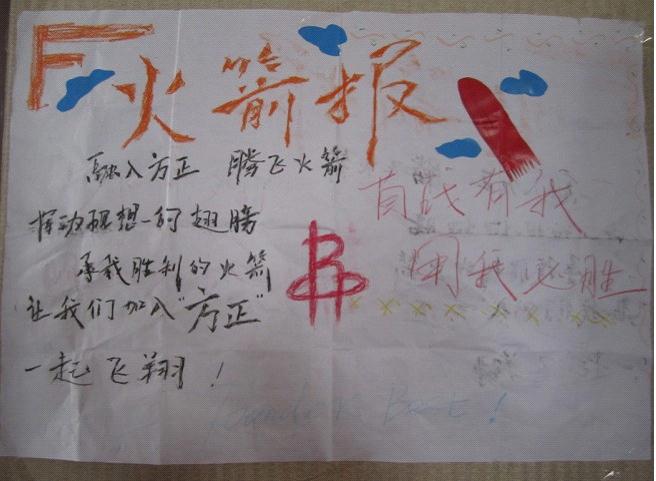 火箭报
融入方正 腾飞火箭
挥动理想的翅膀
承载胜利的火箭
让我们加入"方正"
一起飞翔！
首战有我
用我必胜
Founder is Best!